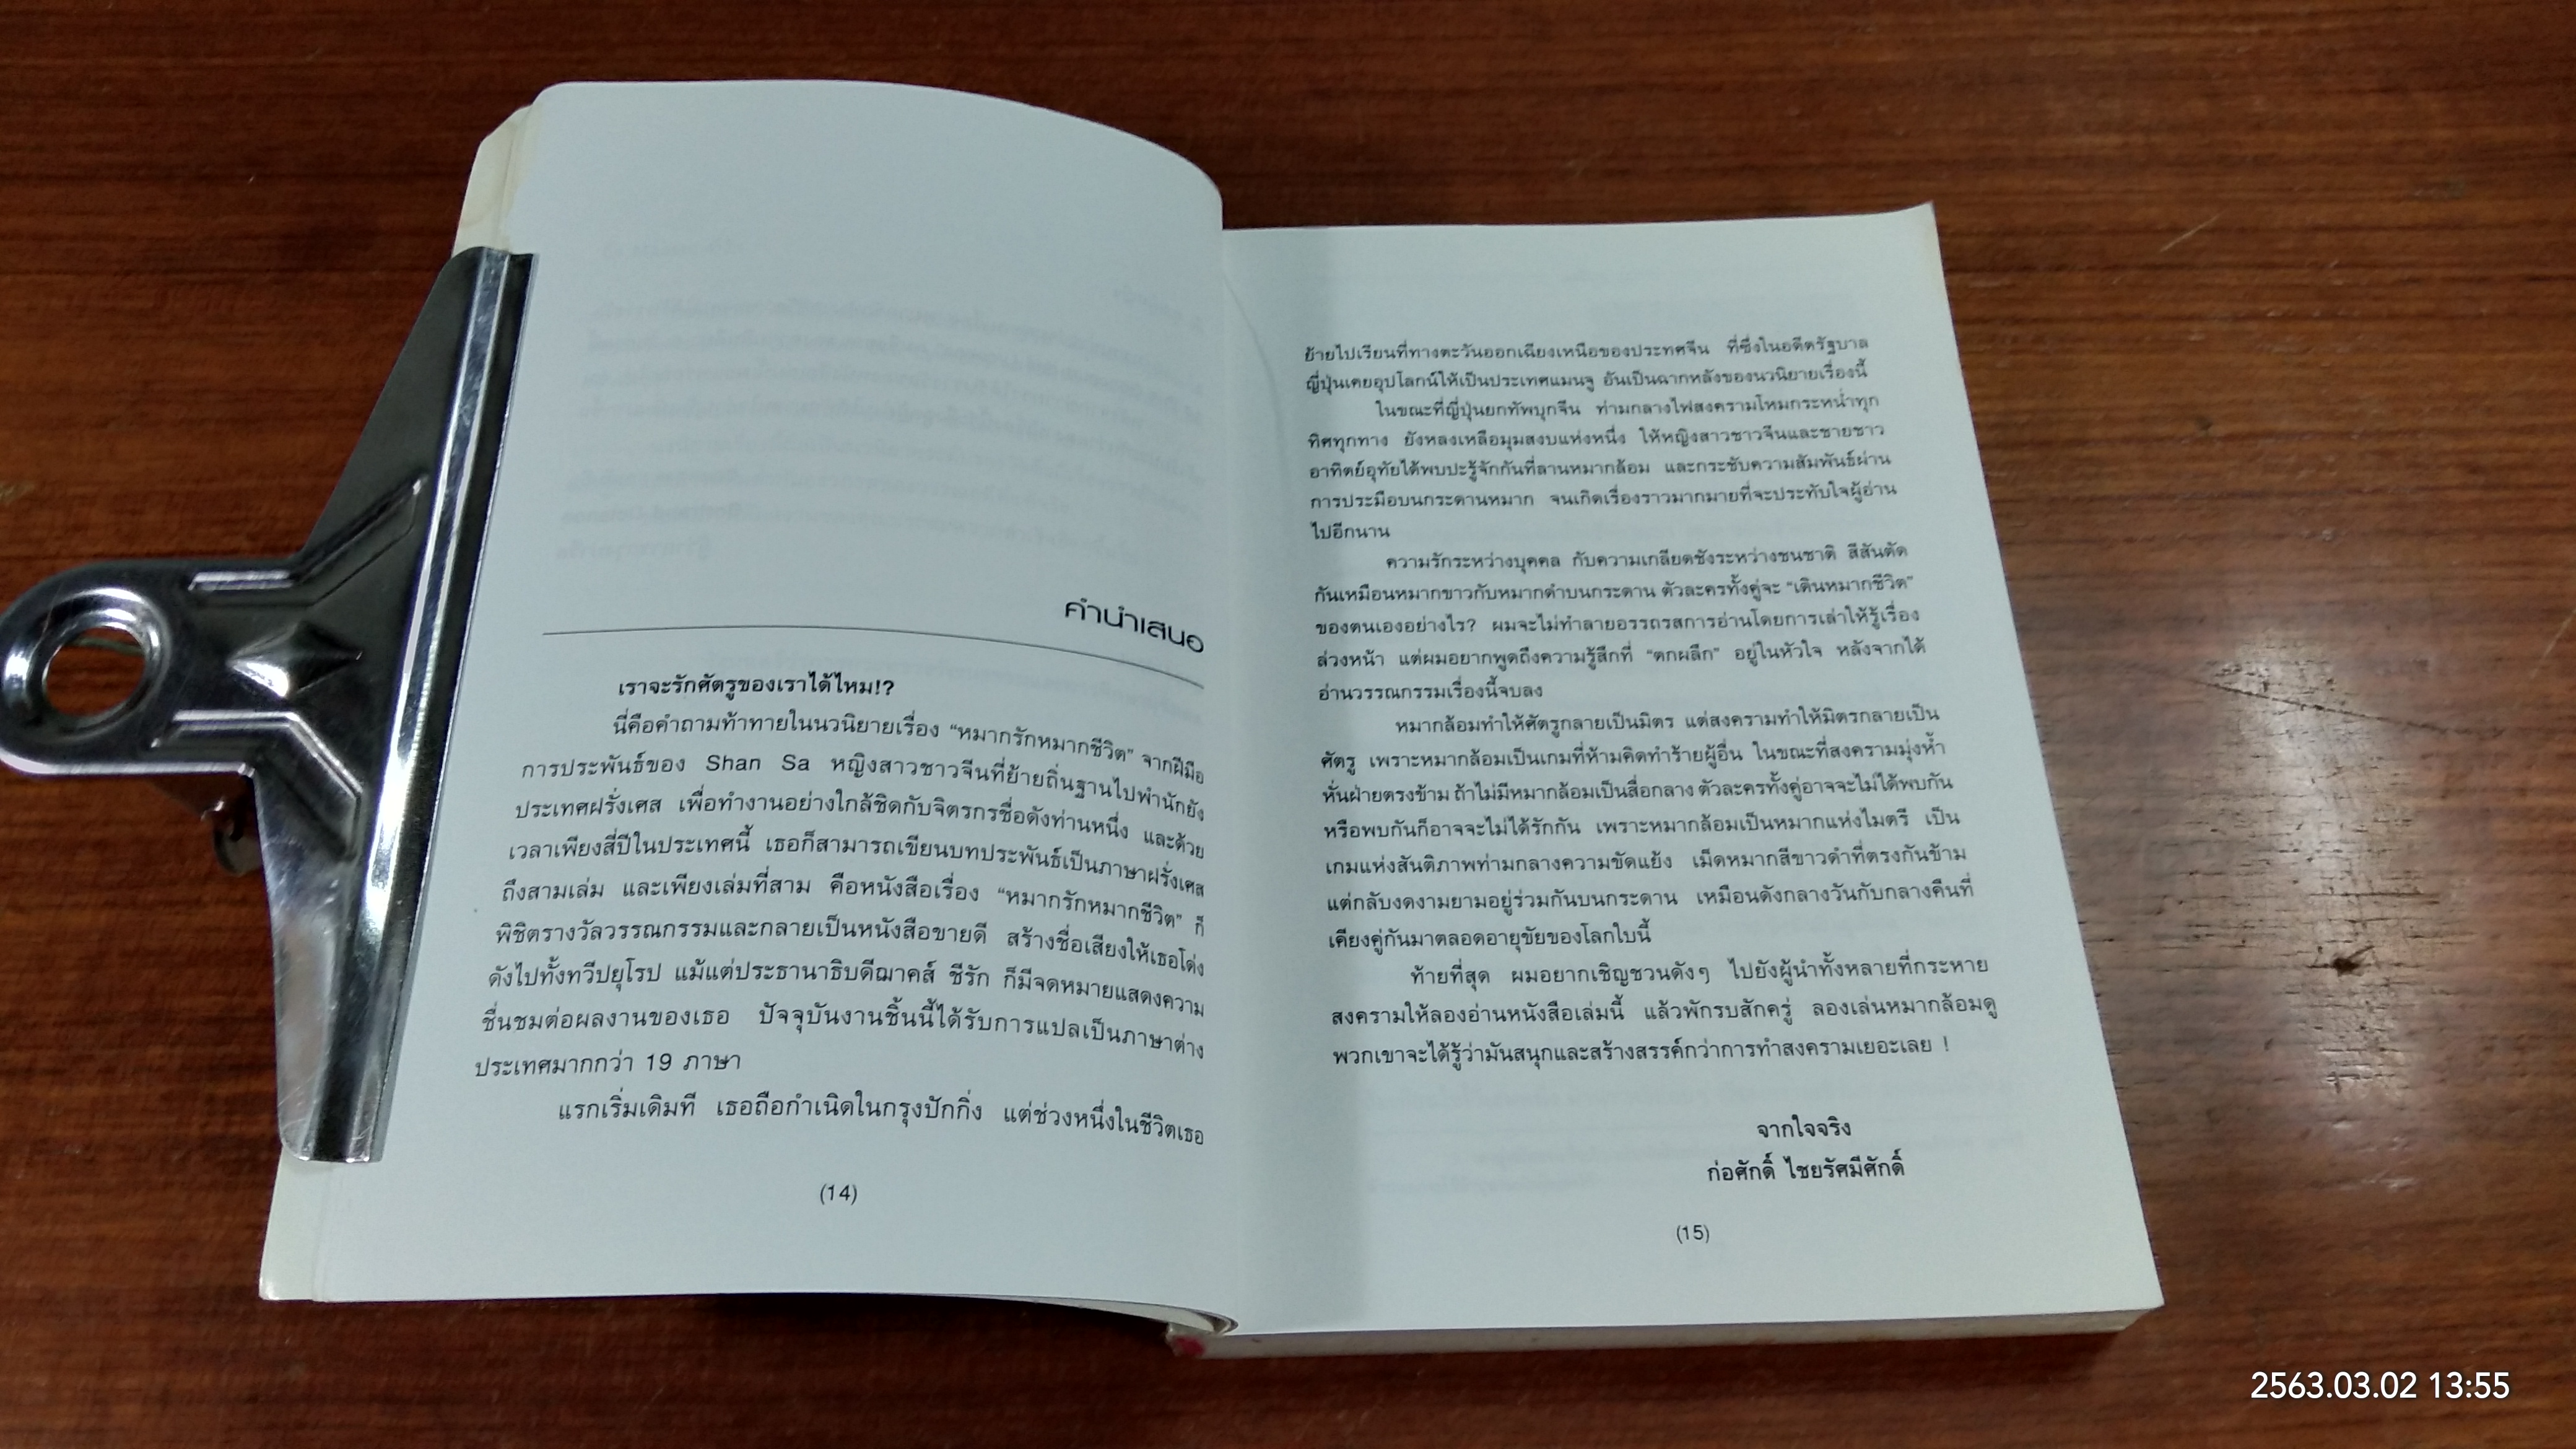 คำนำเสนอ
เราจะรักศัตรูของเราได้ไหม!?
นี่คือคำถามท้าทายในนวนิยายเรื่อง “หมากรักหมากชีวิต” จากฝีมือ
การประพันธ์ของ Shan Sa หญิงสาวชาวจีนที่ย้ายถิ่นฐานไปพำนักยัง
ประเทศฝรั่งเศส เพื่อทำงานอย่างใกล้ชิดกับจิตรกรชื่อดังท่านหนึ่ง และด้วย
เวลาเพียงสี่ปีในประเทศนี้ เธอก็สามารถเขียนบทประพันธ์เป็นภาษาฝรั่งเศส
ถึงสามเล่ม และเพียงเล่มที่สาม คือหนังสือเรื่อง “หมากรักหมากชีวิต” ก็
พิชิตรางวัลวรรณกรรมและกลายเป็นหนังสือขายดี สร้างชื่อเสียงให้เธอโด่ง
ดังไปทั้งทวีปยุโรป แม้แต่ประธานาธิบดีฌาคส์ ชีรัก ก็มีจดหมายแสดงความ
ชื่นชมต่อผลงานของเธอ ปัจจุบันงานชิ้นนี้ได้รับการแปลเป็นภาษาต่าง
ประเทศมากกว่า 19 ภาษา
แรกเริ่มเดิมที เธอถือกำเนิดในกรุงปักกิ่ง แต่ช่วงหนึ่งในชีวิตเธอ
(14)
ย้ายไปเรียนที่ทางตะวันออกเฉียงเหนือของประทศจีน ที่ซึ่งในอดีตรัฐบาล
ญี่ปุ่นเคยอุปโลกน์ให้เป็นประเทศแมนจู อันเป็นฉากหลังของนวนิยายเรื่องนี้
ในขณะที่ญี่ปุ่นยกทัพบุกจีน ท่ามกลางไฟสงครามโหมกระหน่ำทุก
ทิศทุกทาง ยังหลงเหลือมุมสงบแห่งหนึ่ง ให้หญิงสาวชาวจีนและชายชาว
อาทิตย์อุทัยได้พบปะรู้จักกันที่ลานหมากล้อม และกระชับความสัมพันธ์ผ่าน
การประมือบนกระดานหมาก จนเกิดเรื่องราวมากมายที่จะประทับใจผู้อ่าน
ไปอีกนาน
ความรักระหว่างบุคคล กับความเกลียดชังระหว่างชนชาติ สีสันตัด
กันเหมือนหมากขาวกับหมากดำบนกระดาน ตัวละครทั้งคู่จะ “เดินหมากชีวิต”
ของตนเองอย่างไร? ผมจะไม่ทำลายอรรถรสการอ่านโดยการเล่าให้รู้เรื่อง
ล่วงหน้า แต่ผมอยากพูดถึงความรู้สึกที่ “ตกผลึก” อยู่ในหัวใจ หลังจากได้
อ่านวรรณกรรมเรื่องนี้จบลง
หมากล้อมทำให้ศัตรูกลายเป็นมิตร แต่สงครามทำให้มิตรกลายเป็น
ศัตรู เพราะหมากล้อมเป็นเกมที่ห้ามคิดทำร้ายผู้อื่น ในขณะที่สงครามมุ่งห้ำ
หั่นฝ่ายตรงข้าม ถ้าไม่มีหมากล้อมเป็นสื่อกลาง ตัวละครทั้งคู่อาจจะไม่ได้พบกัน
หรือพบกันก็อาจจะไม่ได้รักกัน เพราะหมากล้อมเป็นหมากแห่งไมตรี เป็น
เกมแห่งสันติภาพท่ามกลางความขัดแย้ง เม็ดหมากสีขาวดำที่ตรงกันข้าม
แต่กลับงดงามยามอยู่ร่วมกันบนกระดาน เหมือนดังกลางวันกับกลางคืนที่
เคียงคู่กันมาตลอดอายุขัยของโลกใบนี้
ท้ายที่สุด ผมอยากเชิญชวนดังๆ ไปยังผู้นำทั้งหลายที่กระหาย
สงครามให้ลองอ่านหนังสือเล่มนี้ แล้วพักรบสักครู่ ลองเล่นหมากล้อมดู
พวกเขาจะได้รู้ว่ามันสนุกและสร้างสรรค์กว่าการทำสงครามเยอะเลย !
จากใจจริง
ก่อศักดิ์ ไชยรัศมีศักดิ์
(15)
2563.03.02 13:55